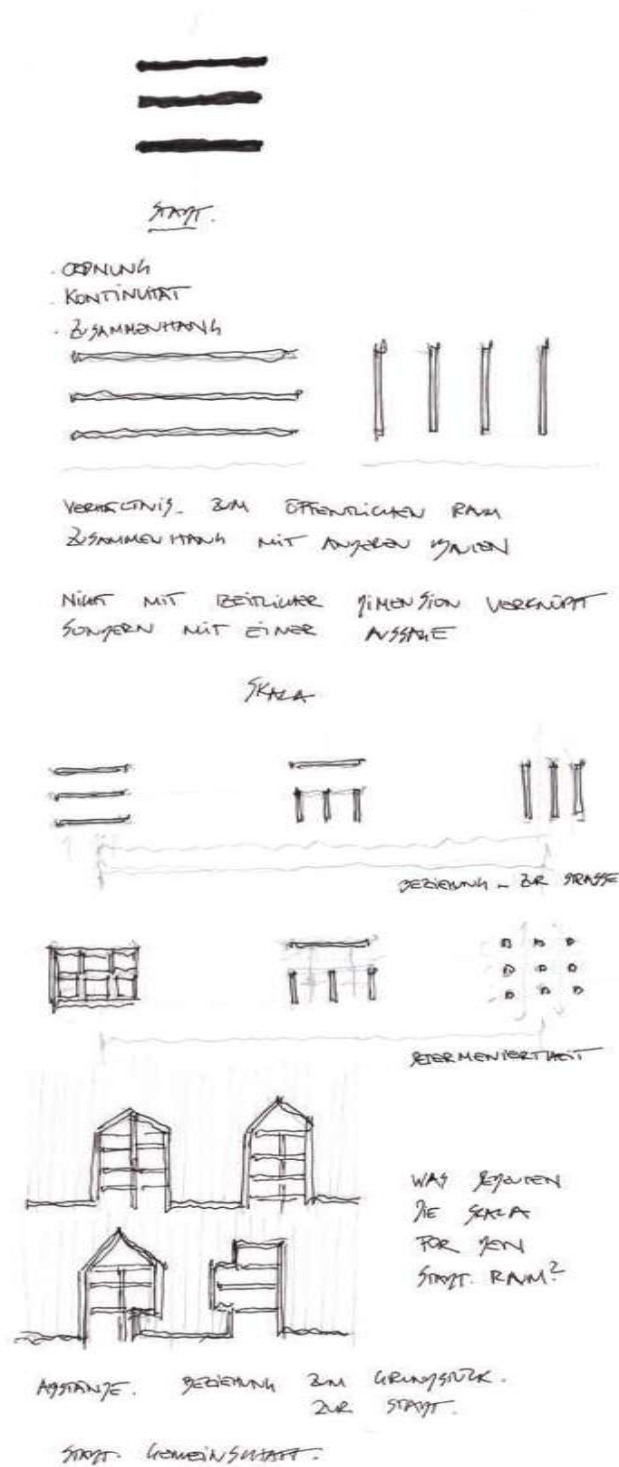 STADT.
. ORDNUNG
. KONTINUITÄT
. ZUSAMMENHANG
VERHÄLTNIS. ZUM ÖFFENTLICHEN RAUM
ZUSAMMENHANG MIT ANDEREN BAUTEN
NICHT MIT ZEITLICHER DIMENSION VERKNÜPFT
SONDERN MIT EINER AUSSAGE
SKALA
BEZIEHUNG - ZUR STRASSE
DETERMENIERTHEIT
WAS BEDEUTEN
DIE SKALA
FÜR DEN
STADT. RAUM?
ABSTÄNDE. BEZIEHUNG ZUM GRUNDSTÜCK.
ZUR STADT.
STADT. GEMEINSCHAFT.